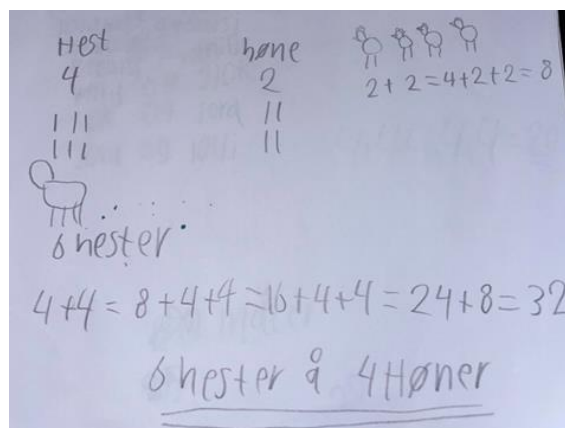 Hest høne
4 2
2 + 2 = 4 + 2 + 2 = 8
||| ||
||| ||
6 hester
4 + 4 = 8 + 4 + 4 = 16 + 4 + 4 = 24 + 8 = 32
6 hester å 4 Høner